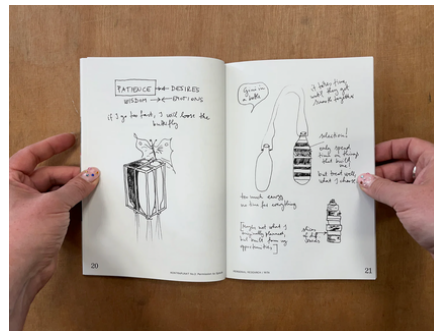 PATIENCE ↔ DESIRES
WISDOM ↔ EMOTIONS
if I go too fast, I will loose the
butterfly
20
Genie in
a bottle
it takes time
until they get
smooth together
selection!
only spend
time on things
that build
me!
but treat well,
what I choose
too much energy
no time for everything
[maybe not what I
originally planned,
but built from my
opportunities]
21